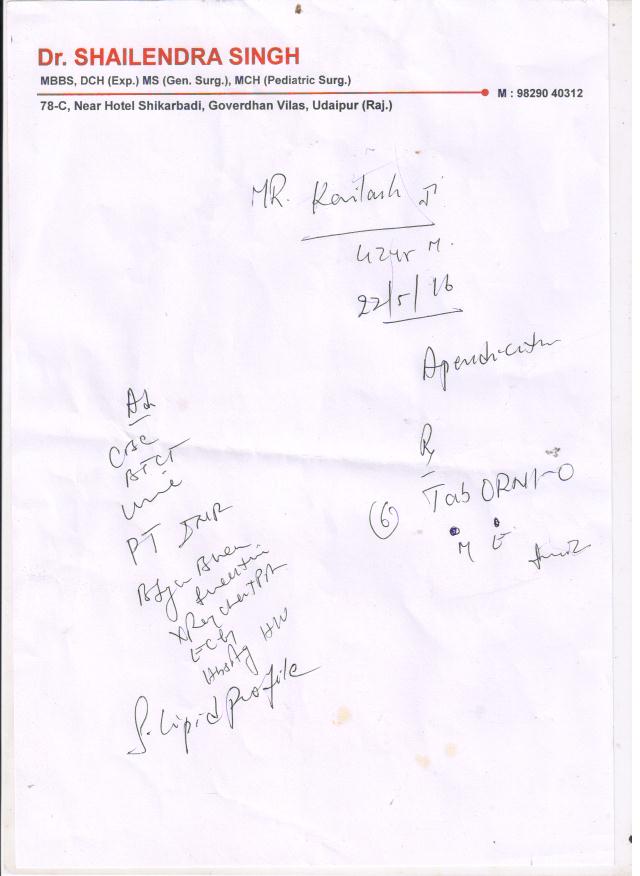 Dr. SHAILENDRA SINGH
MBBS, DCH (Exp.) MS (Gen. Surg.), MCH (Pediatric Surg.)
M : 98290 40312
78-C, Near Hotel Shikarbadi, Goverdhan Vilas, Udaipur (Raj.)
MR. Kailash Ji
42yr M.
22/5/16
Apendicitis
Ad
CBC
BTCT
Urine
PT INR
B Sugar B Urea
S Creatinin
X Ray chest PA
ECG
HbsAg HIV
S. Lipid Profile
Rx
Tab ORNI-O
(6)
M E